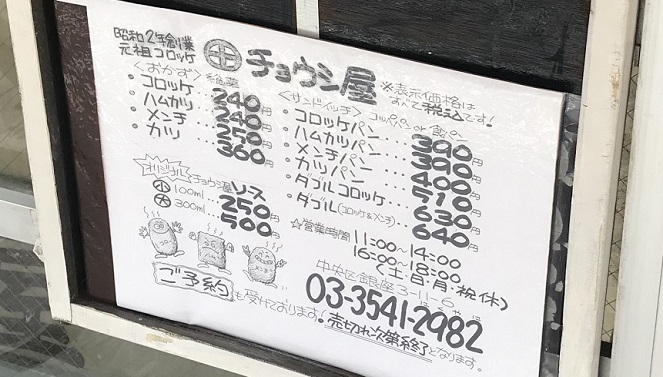 昭和2年創業
元祖コロッケ
チョウシ屋
※表示価格は
すべて税込です!
〈おかず〉総菜
・コロッケ 240円
・ハムカツ 240円
・メンチ 250円
・カツ 300円
〈サンドイッチ〉コッペパン or 食パン
・コロッケパン … 390円
・ハムカツパン … 390円
・メンチパン … 400円
・カツパン … 510円
・ダブルコロッケ … 630円
・ダブル(コロッケ&メンチ) 640円
オリジナル チョウシ屋ソース
小 100ml 250円
大 300ml… 500円
☆営業時間 11:00~14:00
16:00~18:00
(土・日・月・祝休)
中央区銀座3-11-6
03-3541-2982
ご予約も受けております!売切れ次第終了となります。